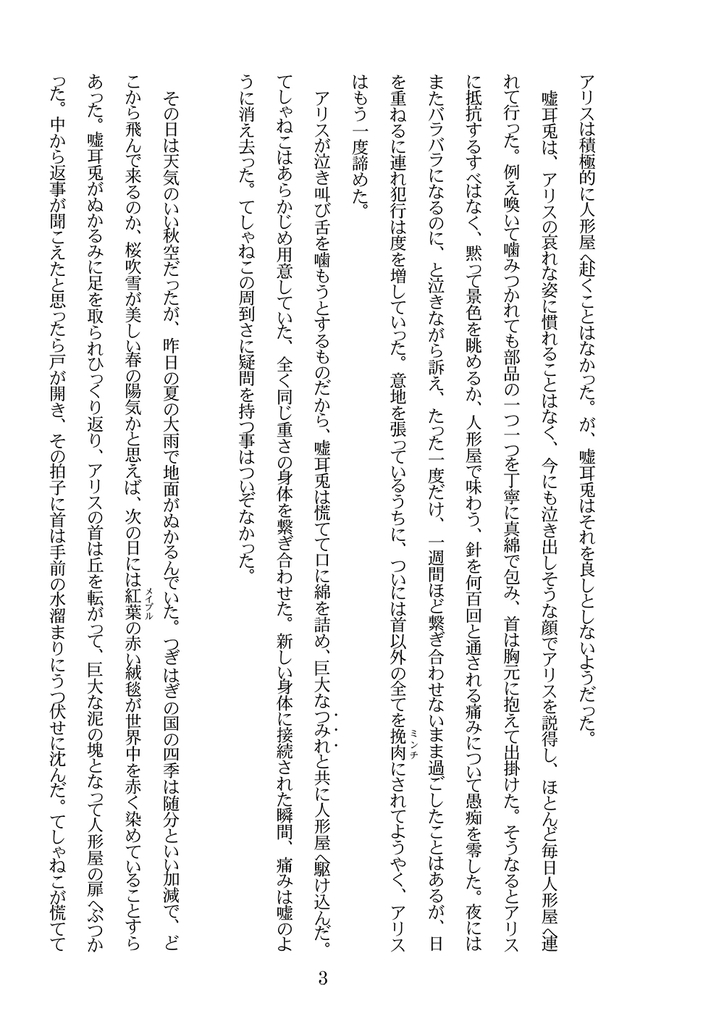 アリスは積極的に人形屋へ赴くことはなかった。が、嘘耳兎はそれを良しとしないようだった。
嘘耳兎は、アリスの哀れな姿に慣れることはなく、今にも泣き出しそうな顔でアリスを説得し、ほとんど毎日人形屋へ連
れて行った。例え喚いて噛みつかれても部品の一つ一つを丁寧に真綿で包み、首は胸元に抱えて出掛けた。そうなるとアリス
に抵抗するすべはなく、黙って景色を眺めるか、人形屋で味わう、針を何百回と通される痛みについて愚痴を零した。夜には
またバラバラになるのに、と泣きながら訴え、たった一度だけ、一週間ほど繋ぎ合わせないまま過ごしたことはあるが、日
を重ねるに連れ犯行は度を増していった。意地を張っているうちに、ついには首以外の全てを挽肉にされてようやく、アリス
ミンチ
はもう一度諦めた。
アリスが泣き叫び舌を噛もうとするものだから、嘘耳兎は慌てて口に綿を詰め、巨大なつみれと共に人形屋へ駆け込んだ。
てしゃねこはあらかじめ用意していた、全く同じ重さの身体を繋ぎ合わせた。新しい身体に接続された瞬間、痛みは嘘のよ
うに消え去った。てしゃねこの周到さに疑問を持つ事はついぞなかった。
その日は天気のいい秋空だったが、昨日の夏の大雨で地面がぬかるんでいた。つぎはぎの国の四季は随分といい加減で、ど
こから飛んで来るのか、桜吹雪が美しい春の陽気かと思えば、次の日には紅葉の赤い絨毯が世界中を赤く染めていることすら
メイプル
あった。嘘耳兎がぬかるみに足を取られひっくり返り、アリスの首は丘を転がって、巨大な泥の塊となって人形屋の扉へぶつか
った。中から返事が聞こえたと思ったら戸が開き、その拍子に首は手前の水溜まりにうつ伏せに沈んだ。てしゃねこが慌てて
3